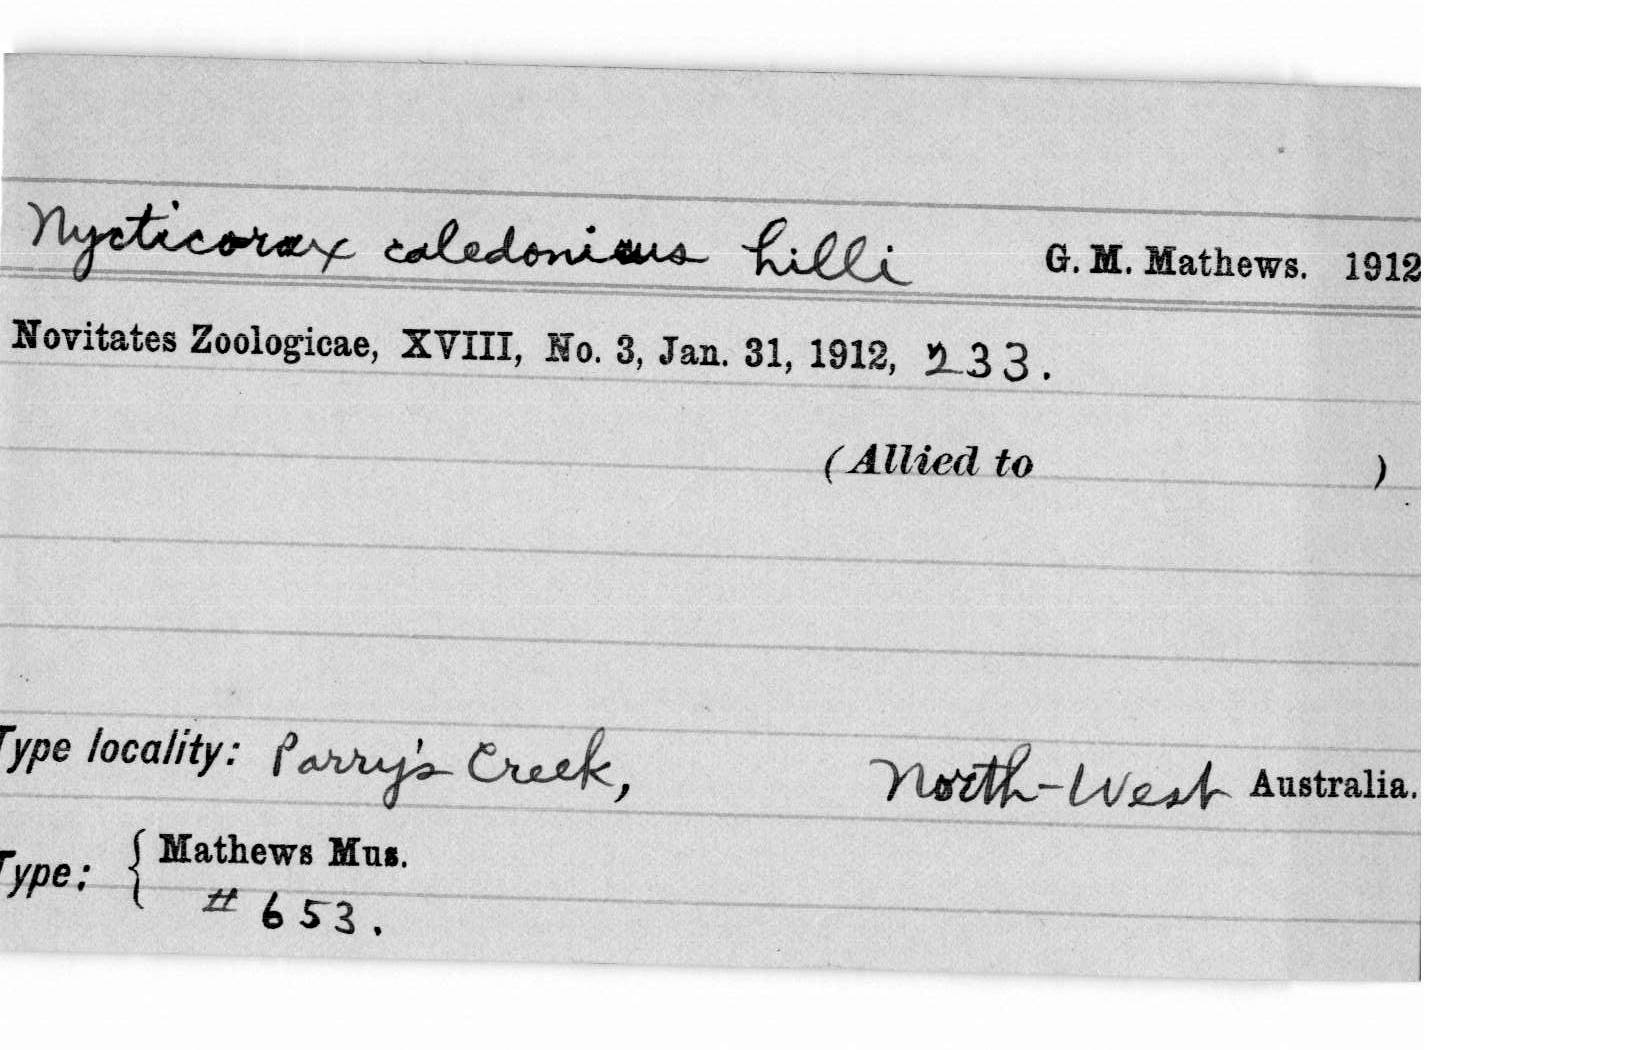 Nycticorax caledonicus hilli G. M. Mathews. 1912
Novitates Zoologicae, XVIII, No. 3, Jan. 31, 1912, 233.
(Allied to )
Type locality: Parry's Creek, North-West Australia.
Type: { Mathews Mus.
# 653.